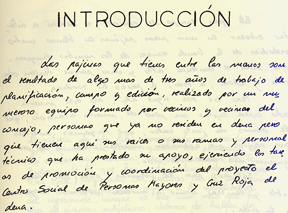 INTRODUCCIÓN
Las páginas que tienes entre las manos son
el resultado de algo mas de tres años de trabajo de
planificación, campo y edición, realizado por un nu
meroso equipo formado por vecinos y vecinas del
concejo, personas que ya no residen en dena pero
que tienen aquí sus raíces o sus ramas y personal
técnico que ha prestado su apoyo, ejerciendo las tare
as de promoción y coordinación del proyecto el
Centro Social de Personas Mayores y Cruz Roja de